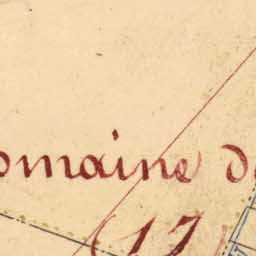 omaine de
(17)